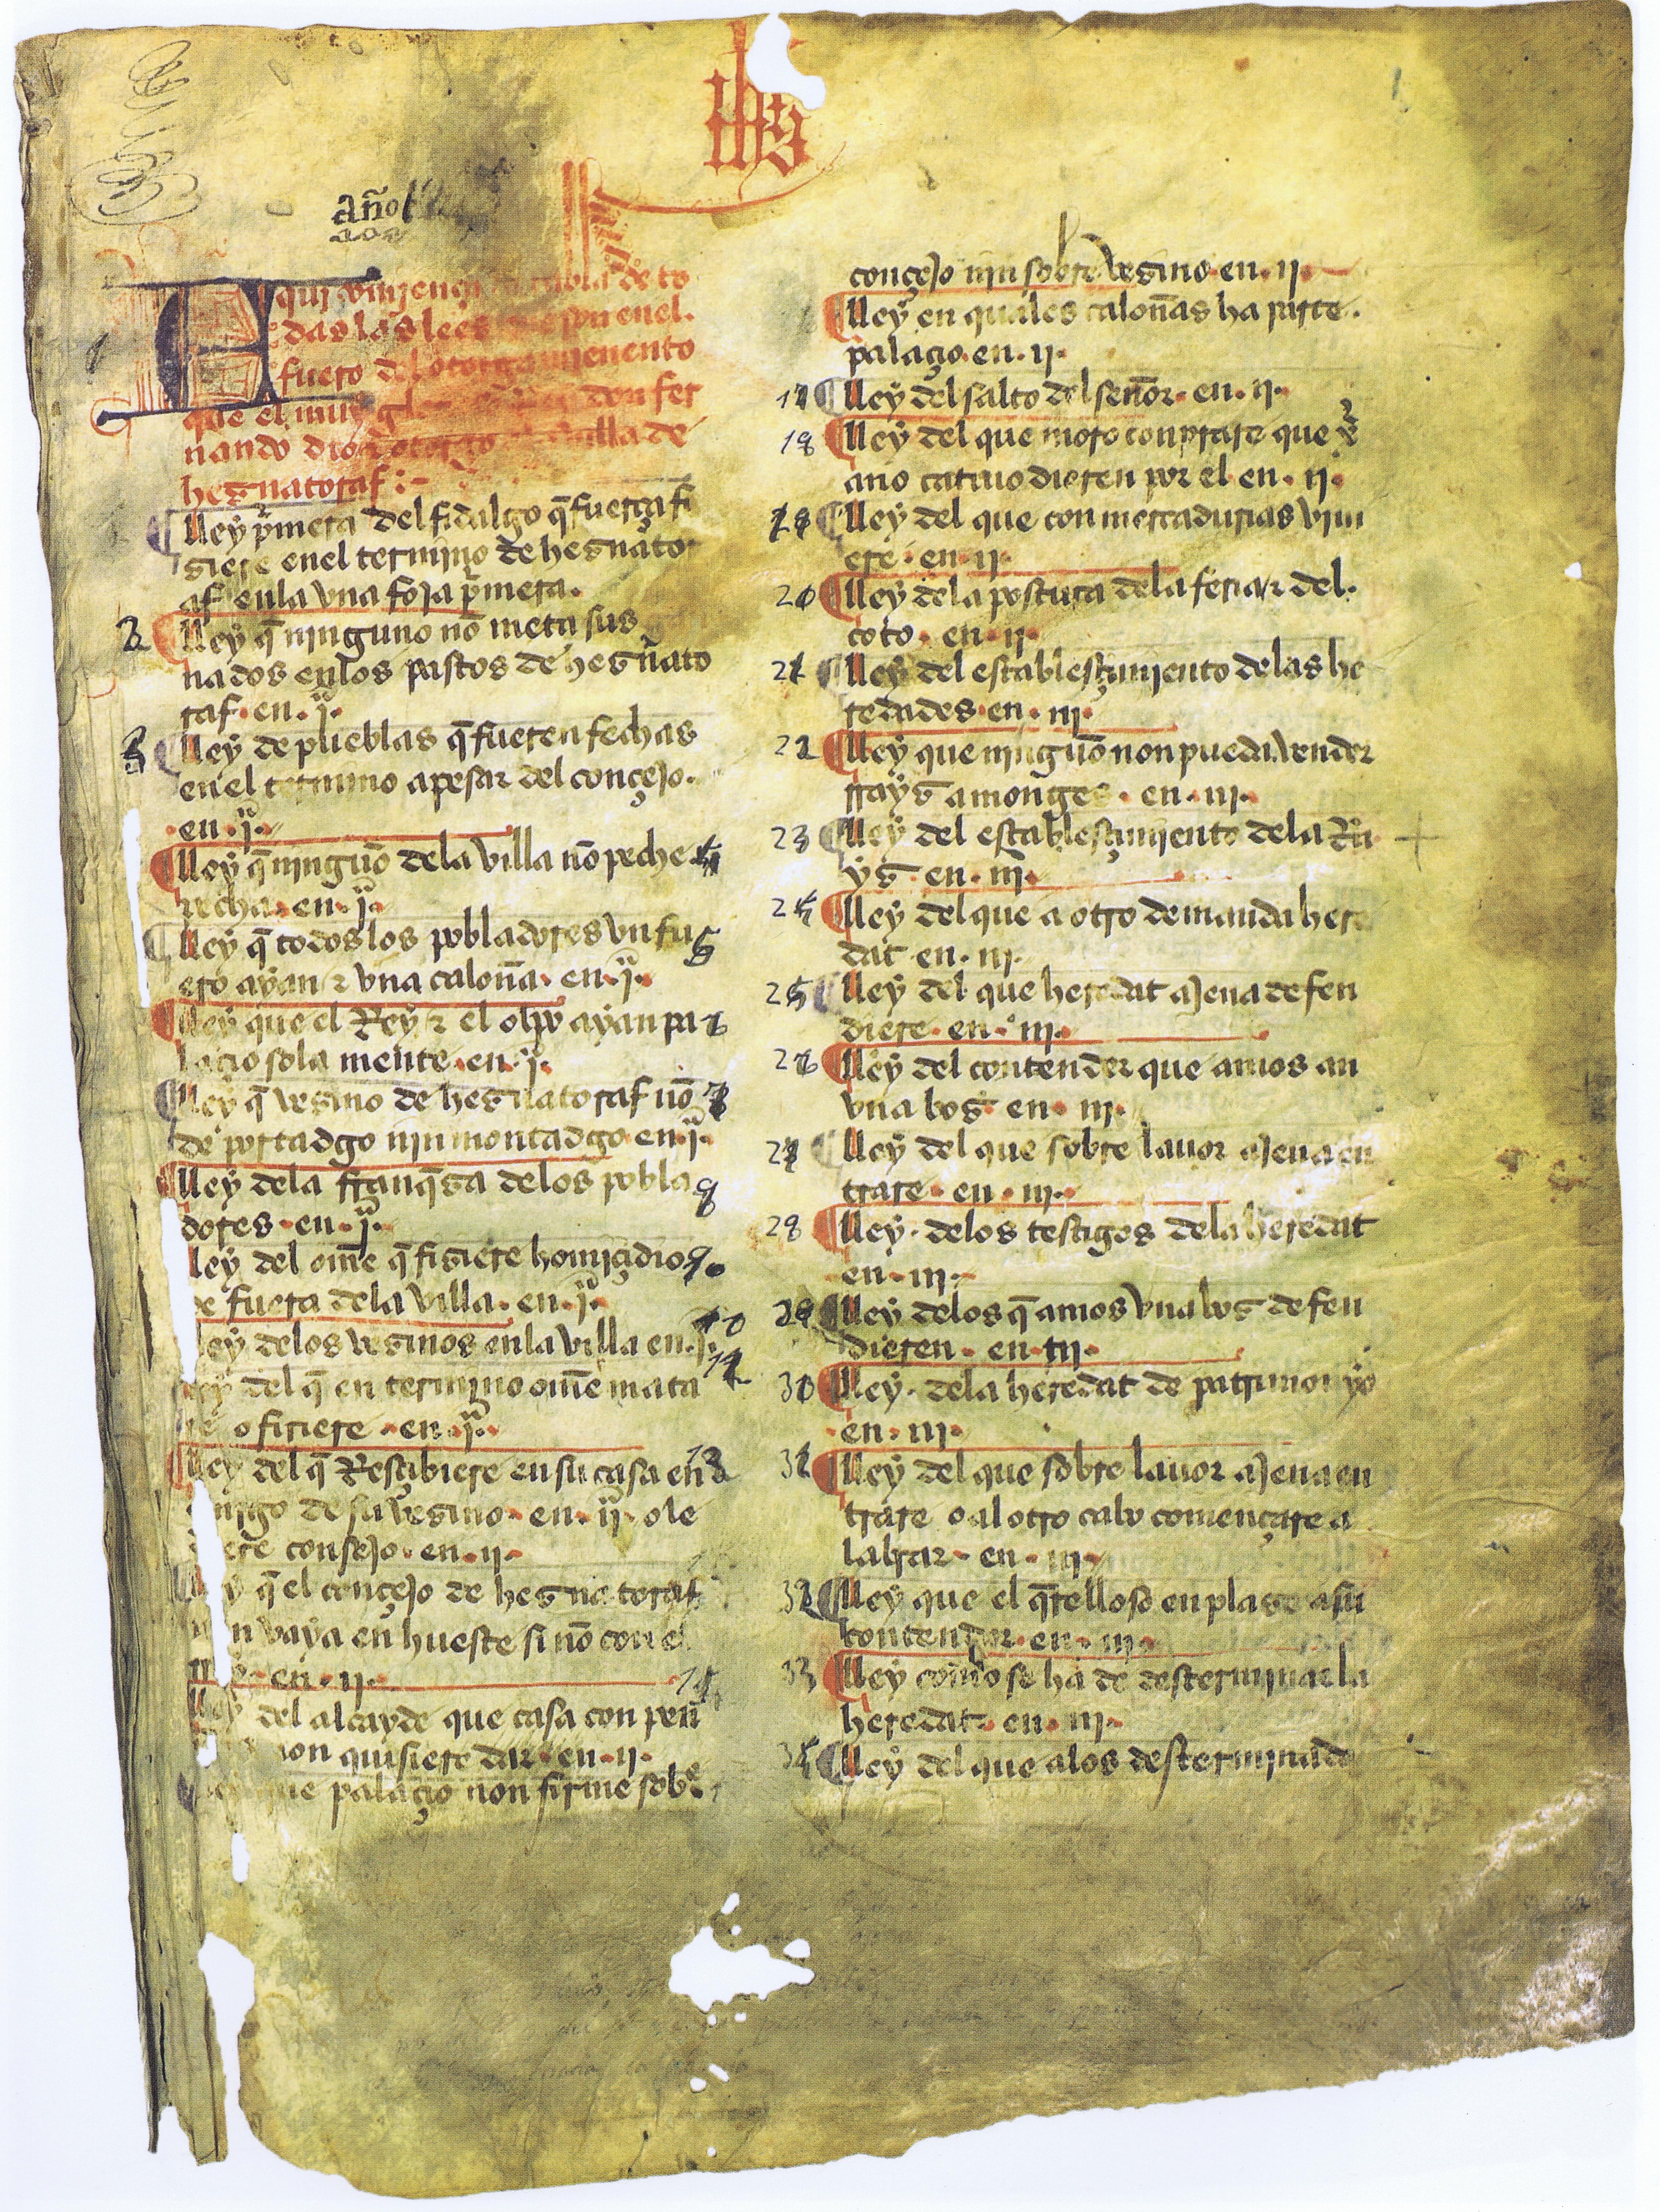 ihs
año
Aqui vinjen la tabla de to
das las lees que son enel.
fuero del otorgamjenento
que el muy don fer
nando dio otorgo villa de
hegnatoraf :-
lley p̃mera del fidalgo q̃ fuerça fi
ziere enel termjno de hegnator
af enla vna foja p̃mera.
2 lley q̃ njnguno nõ meta sus
nados enlos pastos de hegnato
raf. en. j.
3 lley de pueblas q̃ fueren fechas
enel termino apesar del conçejo.
en. j.
lley q̃ njnguõ dela villa nõ peche 4
recha. en. j.
lley q̃ todos los pobladores vn fu 5
ero ayan τ vna caloña. en. j.
lley que el Rey τ el obpo ayan pa 6
laçio sola mente. en. j.
lley q̃ vezino de hegnatoraf nõ 7
de portadgo nin montadgo en. j.
lley dela franq̃za delos pobla 8
dores. en. j.
ley del om̃e q̃ fiziere homiçidio 9
de fuera dela villa. en. j.
ley delos vezinos enla villa en. j. 10
ley del q̃ en termjno om̃e mata 12
re o firiere. en. j.
lley del q̃ Resçibiere en su casa en 13
emigo de su vezino. en. ij. o le
diere consejo. en. ij.
ley q̃ el conçejo de hegnatoraf
non vaya en hueste si nõ con el
en. ij.
ley del alcayde que casa con peñ
non quisiere dar. en. ij.
ley que palaçio non firme sobre
conçejo nin sobre vezino. en. ij.
lley en quales caloñas ha parte.
palaçio. en. ij.
17 lley del salto del señor. en. ij.
18 lley del que moro conprare que xr̃
ano catiuo dieren por el en. ij.
19 lley del que con mercadurias vini
ere. en. ij.
20 lley dela postura dela feria τ del.
coto. en. ij.
21 lley del establesçimjento delas he
redades. en. iij.
22 lley que njnguõ non pueda vender
rrayz a monges. en. iij.
23 lley del establesçimjento dela Ra
yz. en. iij.
24 lley del que a otro demanda here
dat. en. iij.
25 lley del que heredat ajena defen
diere. en. iij.
26 lley del contender que amos an
vna boz en. iij.
27 lley del que sobre lauor ajena en
trare. en. iij.
28 lley. delos testigos dela heredat
en. iij.
29 lley delos q̃ amos vna boz defen
dieren. en. iij.
30 lley. dela heredat de patrimonyo
en. iij.
31 lley del que sobre lauor ajena en
trare o al otro cabo començare a
labrar. en. iij.
32 lley que el q̃relloso enplaze a su
contendor. en. iij.
33 lley como se ha de desterminar la
heredat. en. iij.
34 lley del que alos desterminado